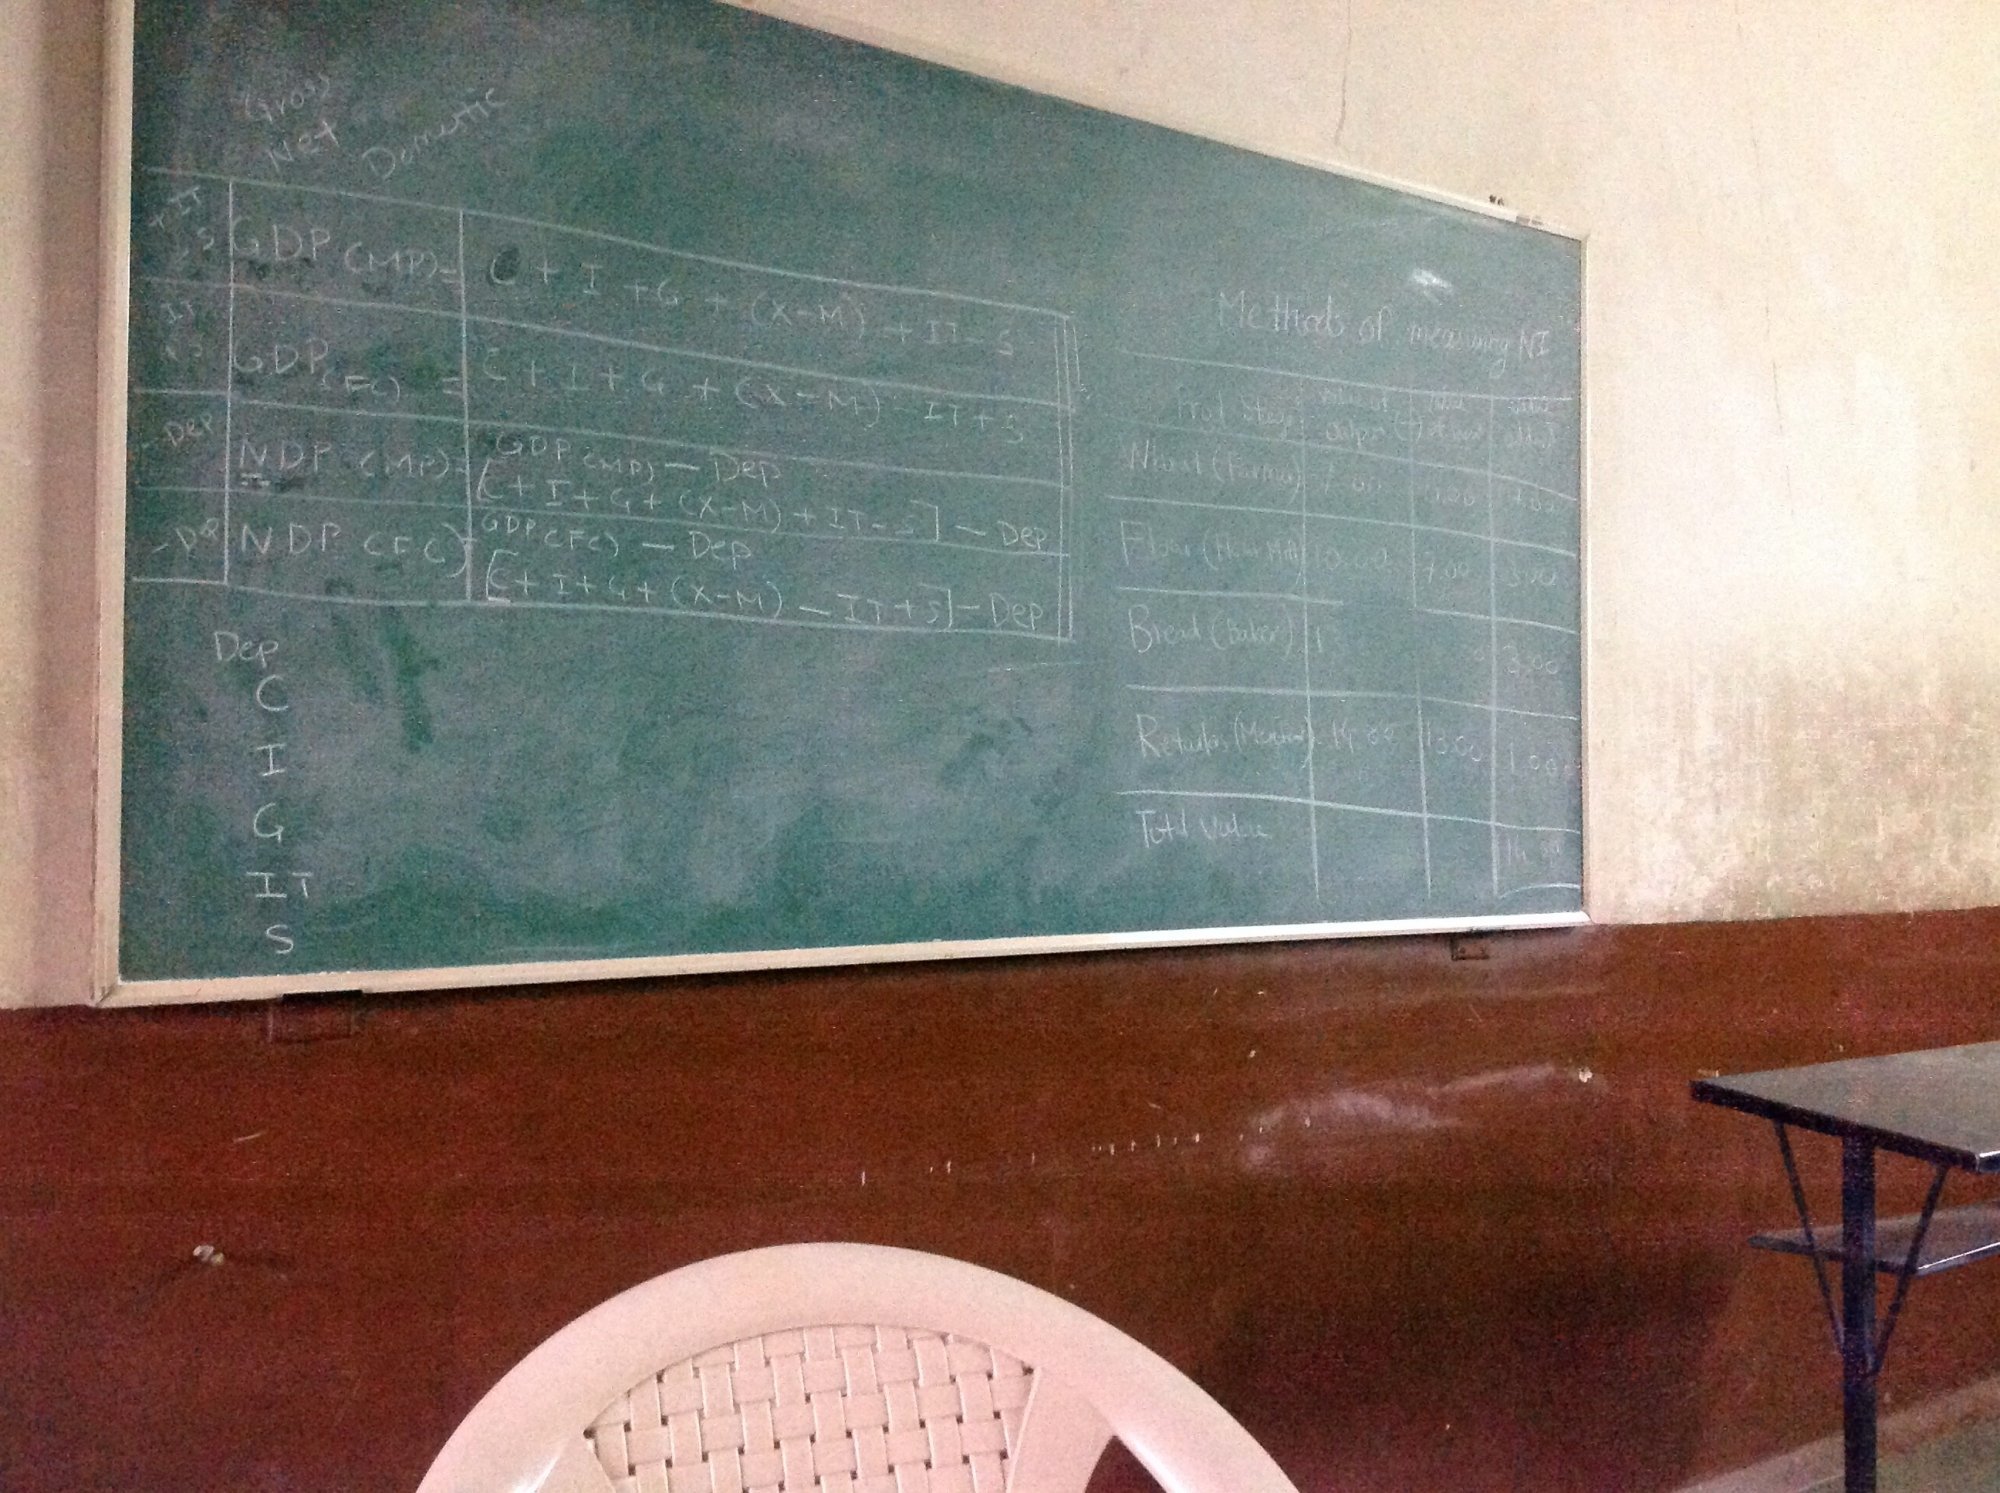 Gross
Net Domestic
+ IT
- S
GDP (MP) = C + I + G + (X-M) + IT - S
GDP (FC) = C + I + G + (X-M) - IT + S
- Dep
NDP (MP) = GDP (MP) - Dep
[C + I + G + (X-M) + IT - S] - Dep
- Dep
NDP (FC) = GDP (FC) - Dep
[C + I + G + (X-M) - IT + S] - Dep
Dep
C
I
G
IT
S
Methods of measuring NI
Prod Stage
Wheat (Farmer) 7.00 0.00 7.00
Flour (Flour Mill) 10.00 7.00 3.00
Bread (Baker) 3.00
14.00 13.00 1.00
Total Value